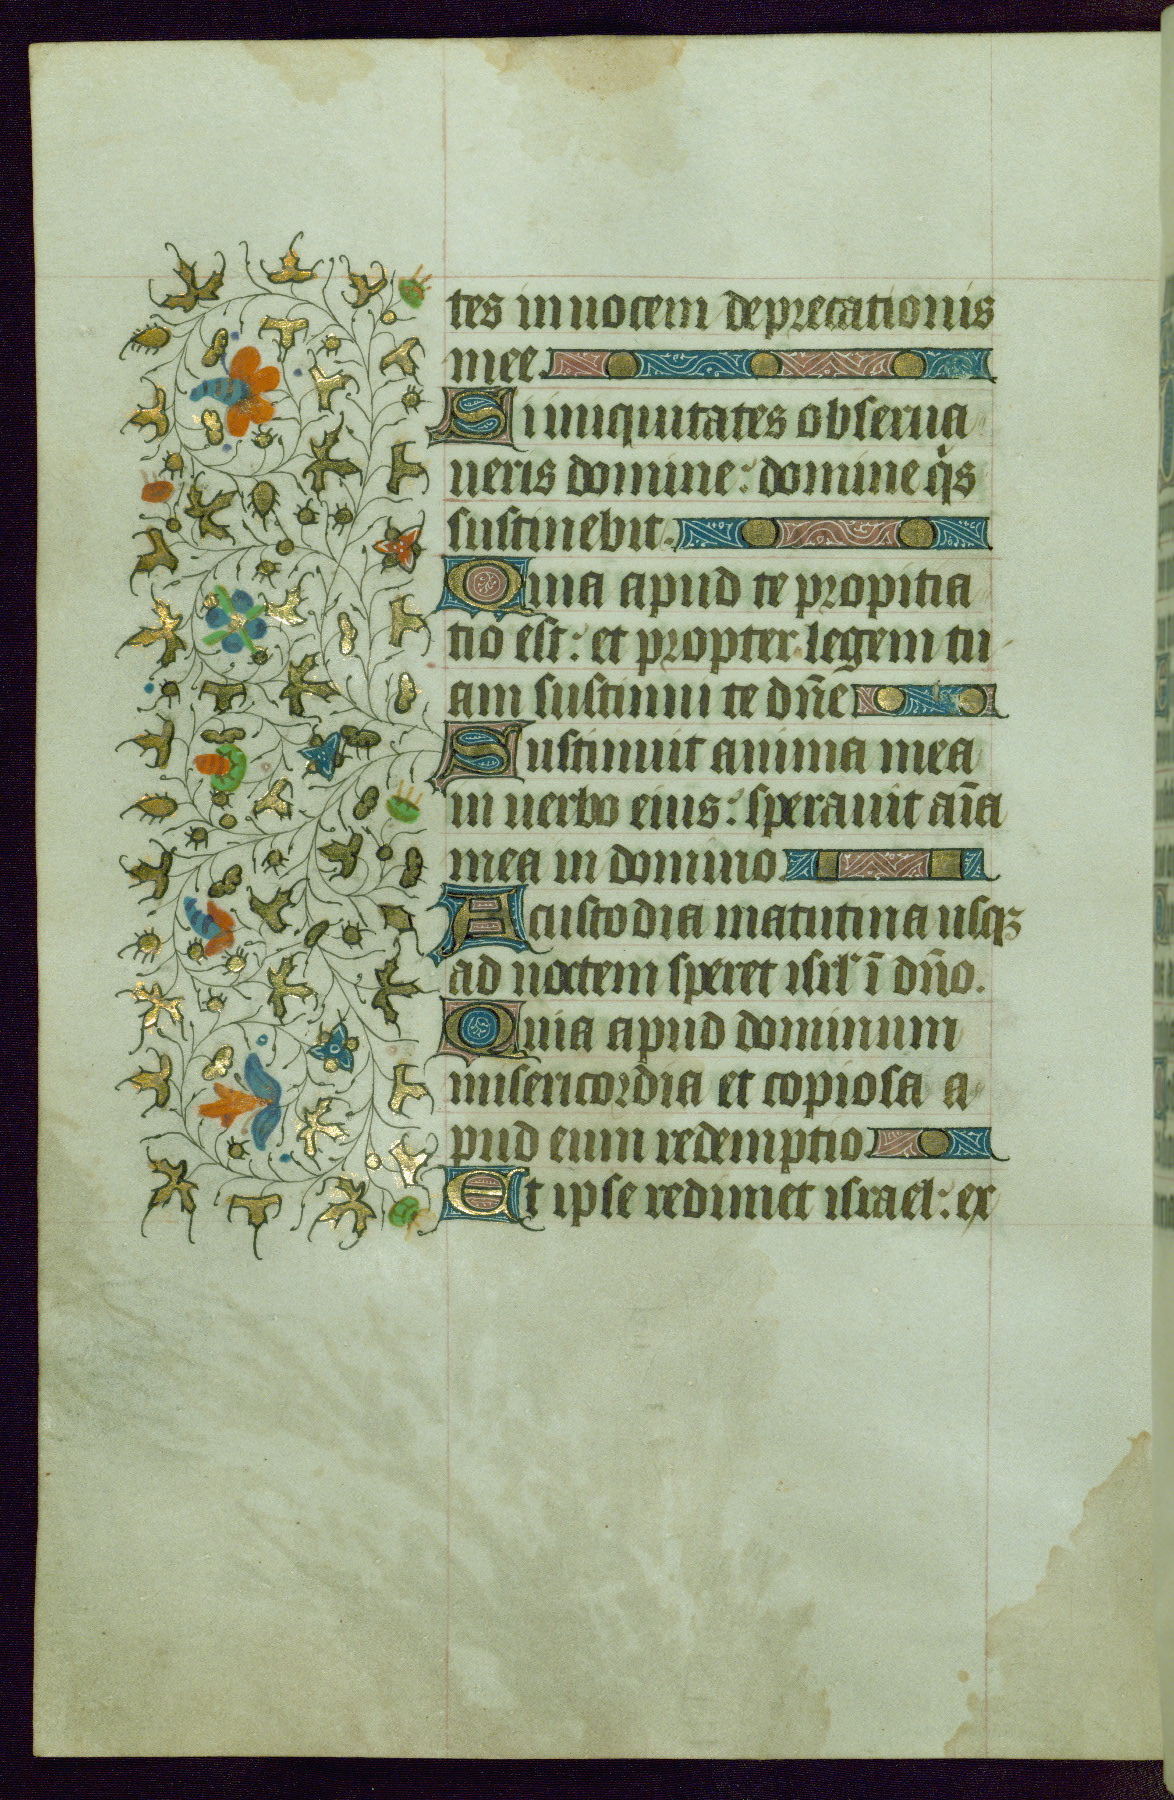 tes in uocem deprecationis
mee.
Si iniquitates obserua
ueris domine: domine qͥs
sustinebit.
Quia apud te propitia
tio est: et propter legem tu
am sustinui te dn̄e
Sustinuit anima mea
in uerbo eius: sperauit aīa
mea in domino
A custodia matutina usqꝫ
ad noctem speret isrl' ī dn̄o.
Quia apud dominum
misericordia et copiosa a
pud eum redemptio
Et ipse redimet israel: ex